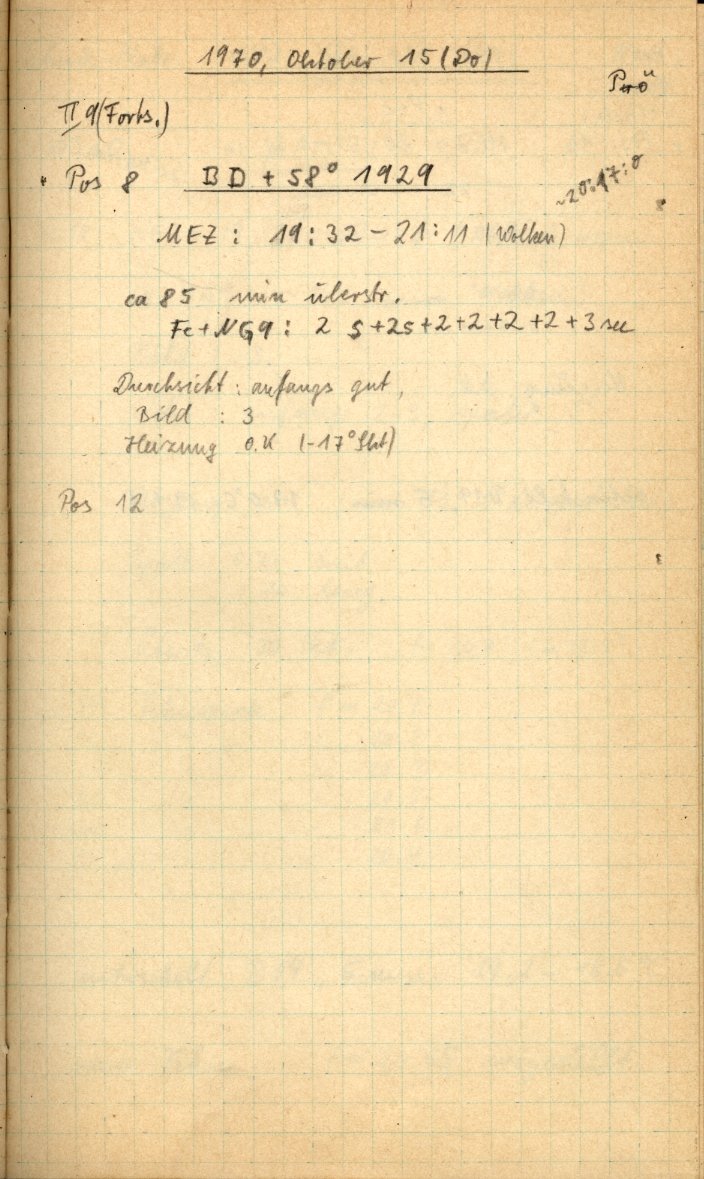 1970, Oktober 15 (Do)
II 9 (Forts.)
Pos 8 BD + 58° 1929
~20:17:0
MEZ : 19:32 - 21:11 (Wolken)
ca 85 min überstr.
Fe + NG9 : 2 s + 2s + 2 + 2 + 2 + 2 + 3 sec
Durchsicht : anfangs gut,
Bild : 3
Heizung o.K (-17° Skt)
Pos 12